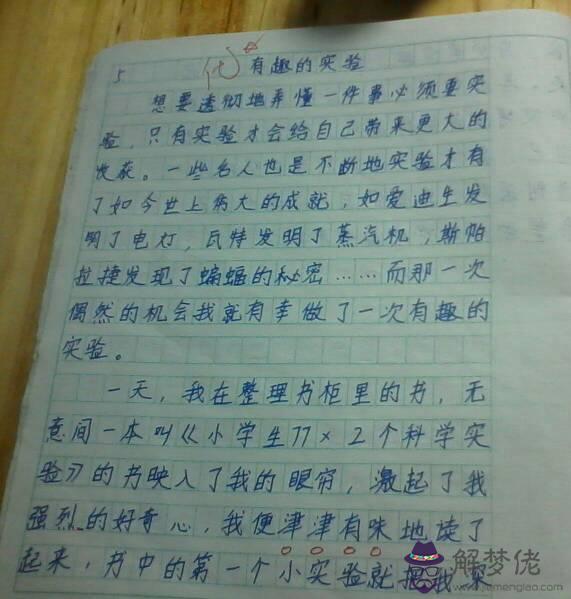 5 优 有趣的实验
想要透彻地弄懂一件事必须要实
验，只有实验才会给自己带来更大的
收获。一些名人也是不断地实验才有
了如今世上伟大的成就，如爱迪生发
明了电灯，瓦特发明了蒸汽机，斯帕
拉捷发现了蝙蝠的秘密……而那一次
偶然的机会我就有幸做了一次有趣的
实验。
一天，我在整理书柜里的书，无
意间一本叫《小学生77×2个科学实
验》的书映入了我的眼帘，激起了我
强烈的好奇心，我便津津有味地读了
起来，书中的第一个小实验就把我深
解梦佬
www.jiemenglao.com